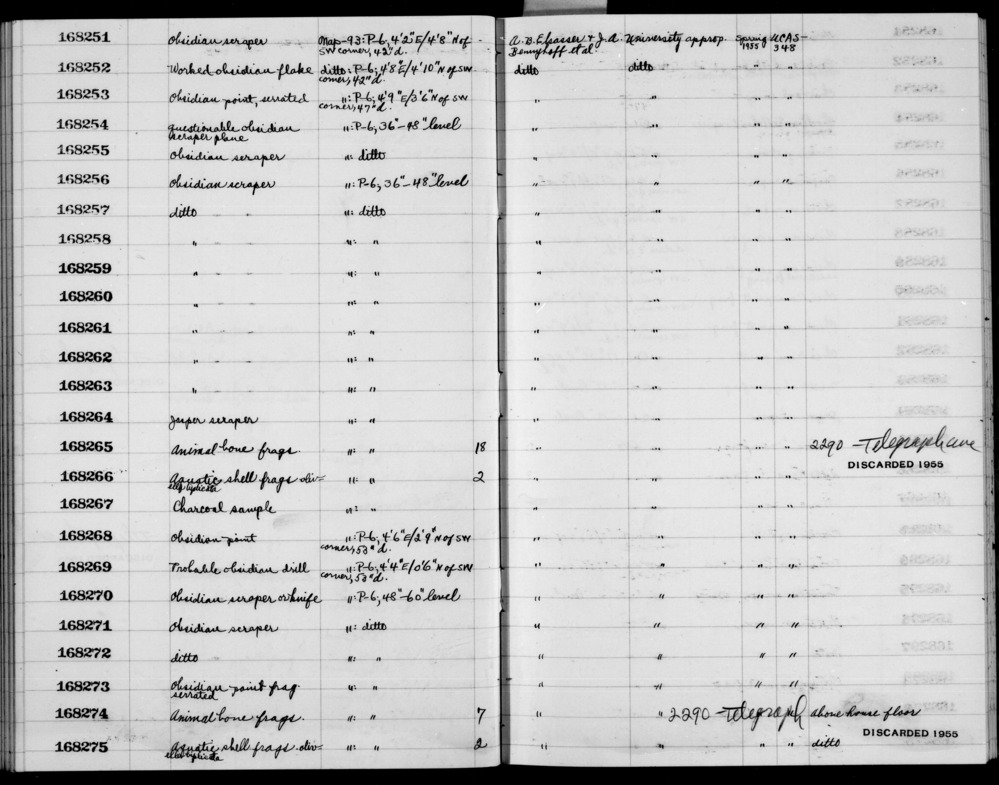 168251 Obsidian scraper Nap-93: P-6, 4'2" E/4'8" N of SW corner, 42" d. - A. B. Elsasser & J. A. Bennyhoff et al University approp. Spring 1955 UCAS-348
168252 Worked obsidian flake ditto: P-6; 4'8" E/4'10" N of SW corner, 42" d. ditto ditto " "
168253 Obsidian point, serrated ": P-6, 4'9" E/3'6" N of SW corner, 47" d. " " " "
168254 questionable obsidian scraper plane ": P-6, 36"-48" level " " " "
168255 Obsidian scraper ": ditto " " " "
168256 Obsidian scraper ": P-6, 36"-48" level " " " "
168257 ditto ": ditto " " " "
168258 " ": " " " " "
168259 " ": " " " " "
168260 " ": " " " " "
168261 " ": " " " " "
168262 " ": " " " " "
168263 " ": " " " " "
168264 Jasper scraper ": " " " " "
168265 Animal bone frags. ": " 18 " " " " 2290 - Telegraph ave
DISCARDED 1955
168266 Aquatic shell frags. oliv= ": " 2 " " " "
168267 Charcoal sample ": " " " " "
168268 Obsidian point ": P-6, 4'6" E/2'9" N of SW corner, 50" d. " " " "
168269 Probable obsidian drill ": P-6, 4'4" E/0'6" N of SW corner, 50" d. " " " "
168270 Obsidian scraper or knife ": P-6, 48"-60" level " " " "
168271 Obsidian scraper ": ditto " " " "
168272 ditto ": " " " " "
168273 Obsidian point frag serrated ": " " " " "
168274 Animal bone frags. ": " 7 " " 2290 - Telegraph above house floor
DISCARDED 1955
168275 Aquatic shell frags. oliv= ": " 2 " " " " ditto